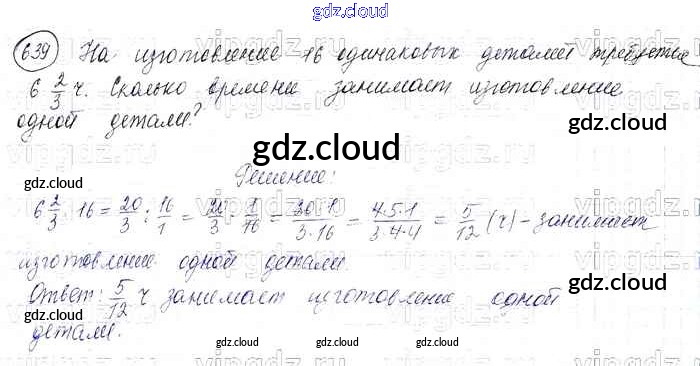 gdz.cloud
639 На изготовление 16 одинаковых деталей требуется
6 2/3 ч. Сколько времени занимает изготовление
одной детали?
gdz.cloud
Решение:
gdz.cloud
gdz.cloud
6 2/3 : 16 = 20/3 : 16/1 = 20/3 · 1/16 = 20·1/3·16 = 4·5·1/3·4·4 = 5/12 (ч) - занимает
изготовление одной детали
gdz.cloud
Ответ: 5/12 ч занимает изготовление одной
детали.
gdz.cloud
gdz.cloud
gdz.cloud